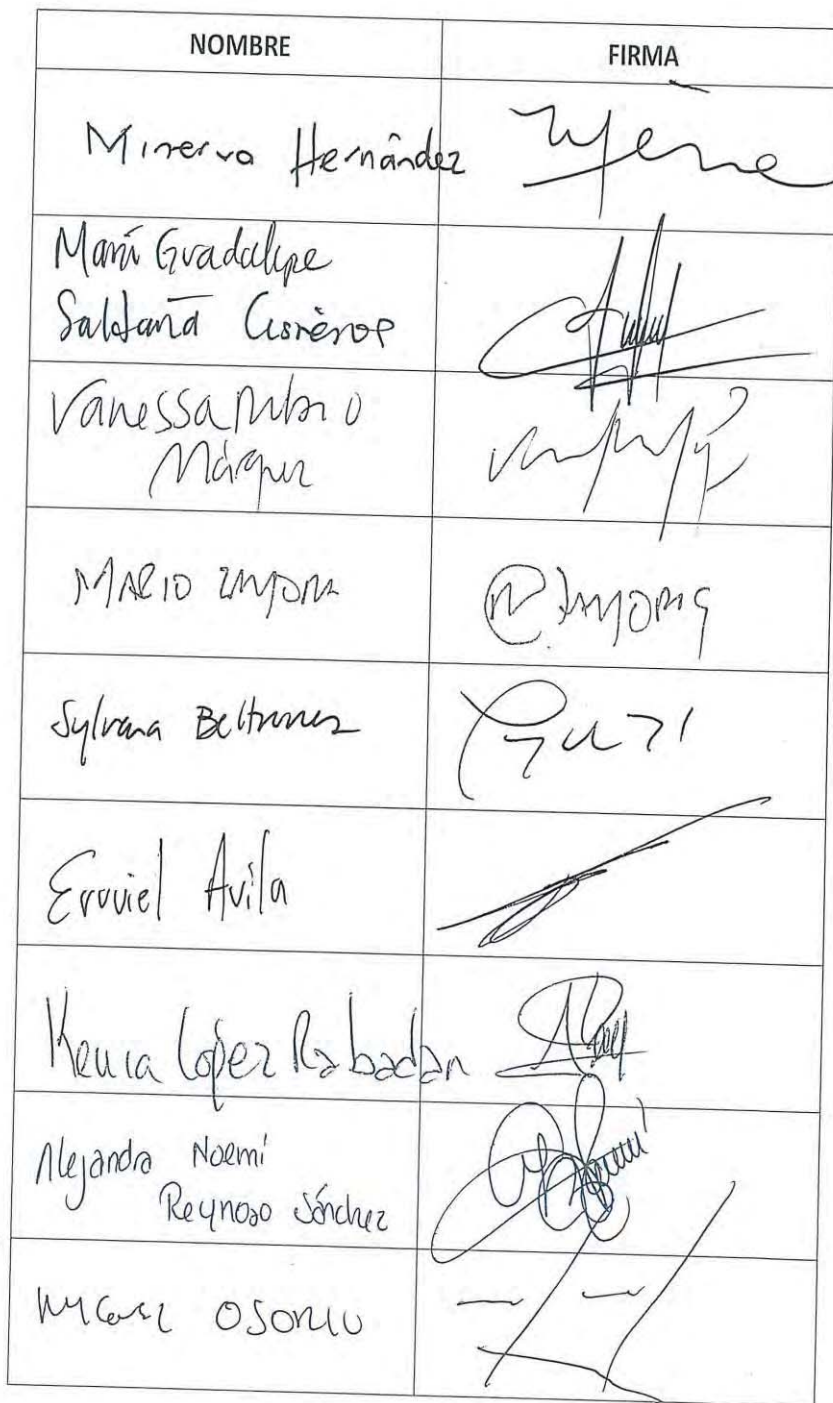 NOMBRE FIRMA
Minerva Hernández
María Guadalupe
Saldaña Cisneros
Vanessa Rubio
Márquez
MARIO ZAMORA
Sylvana Beltrones
Eruviel Avila
Kenia López Rabadan
Alejandra Noemí
Reynoso Sánchez
MIGUEL OSORIO